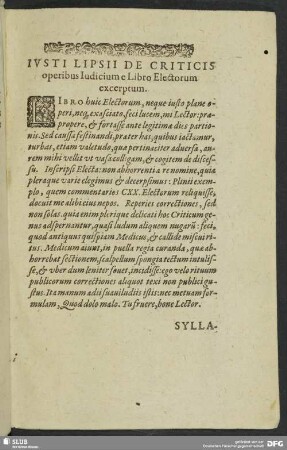 IVSTI LIPSII DE CRITICIS
operibus Iudicium e Libro Electorum
excerptum.
LIBRO huic Electorum, neque iusto plane o-
peri, neq, exasciato, feci lucem, mi Lector: præ-
propere, & fortasse ante legitima dies partio-
nis. Sed caussa festinandi, præter has, quibus iactamur,
turbas, etiam valetudo, quæ pertinaciter adversa, au-
rem mihi vellit vt vasa colligam, & cogitem de disces-
su. Inscripsi Electa: non abhorrenti a re nomine, quia
pleraque varie elegimus & decerpsimus: Plinii exem-
plo, quem commentarios CXX. Electorum reliquisse,
docuit me alibi eius nepos. Reperies correctiones, sed
non solas. quia enim plerique delicati hoc Criticum ge-
nus adspernantur, quasi ludum aliquem nugarū: feci,
quod antiquus quispiam Medicus, & callide miscui vi-
rus. Medicum aiunt, in puella regia curanda, quæ ab-
horrebat sectionem, scalpellum spongia tectum intulis-
se, & vber dum leniter fovet, incidisse: ego velo rituum
publicorum correctiones aliquot texi non publici gu-
stus. Ita manum adii suaviludiis istis: nec metuam for-
mulam, Quod dolo malo. Tu fruere, bone Lector.
SYLLA-
SLUB
DFG